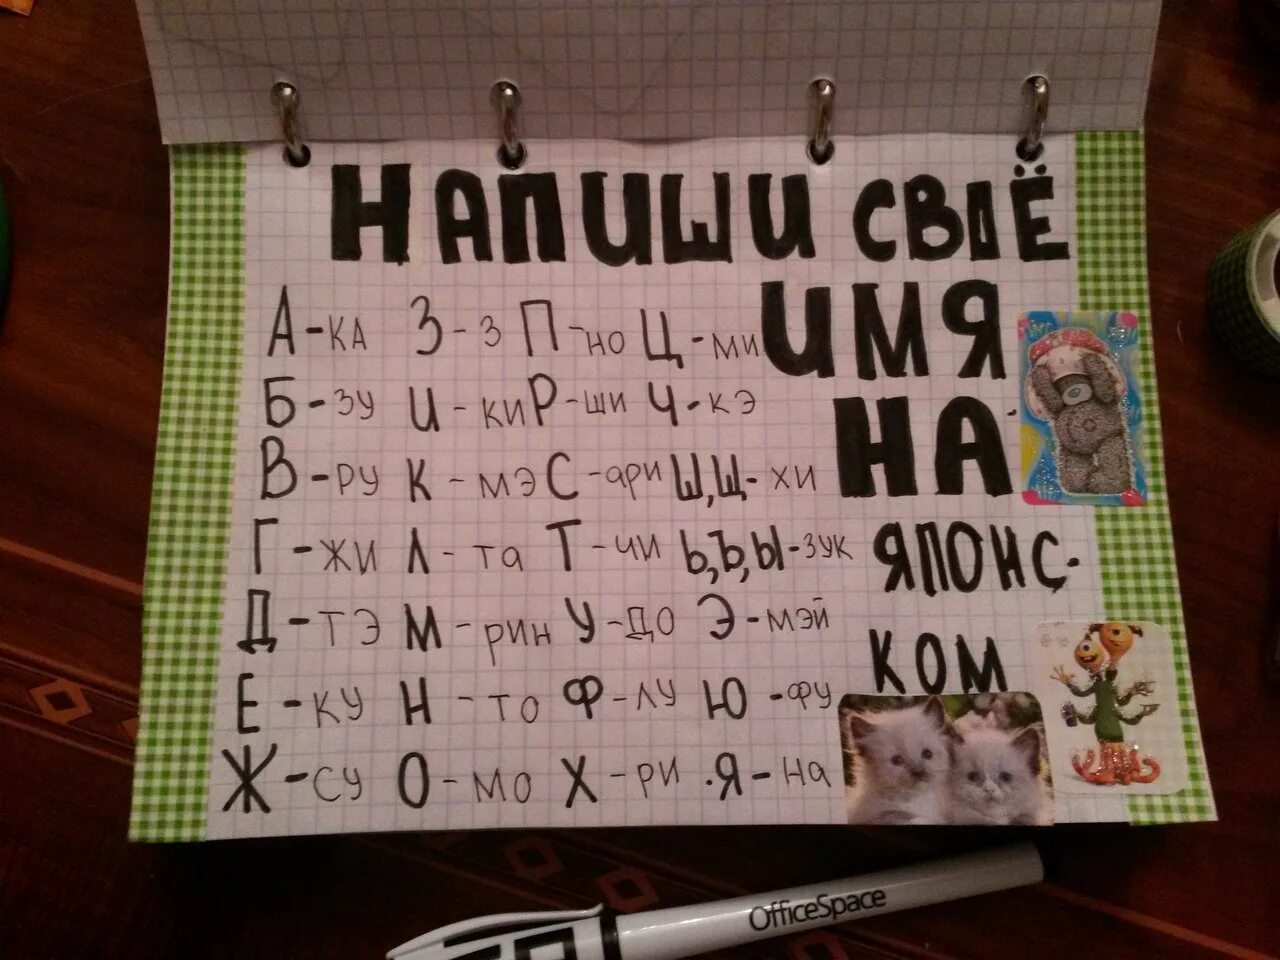 НАПИШИ СВОЁ
ИМЯ
НА
ЯПОНС-
КОМ
А-КА З-З П-НО Ц-МИ
Б-ЗУ И-КИ Р-ШИ Ч-КЭ
В-РУ К-МЭ С-АРИ Ш,Щ-ХИ
Г-ЖИ Л-ТА Т-ЧИ Ь,Ъ,Ы-ЗУК
Д-ТЭ М-РИН У-ДО Э-МЭЙ
Е-КУ Н-ТО Ф-ЛУ Ю-ФУ
Ж-СУ О-МО Х-РИ Я-НА
OfficeSpace